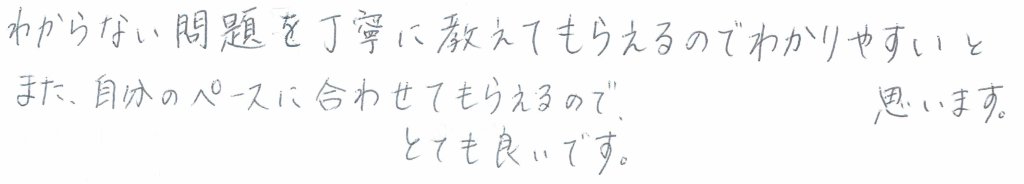 わからない問題を丁寧に教えてもらえるのでわかりやすいと
思います。
また、自分のペースに合わせてもらえるので、
とても良いです。